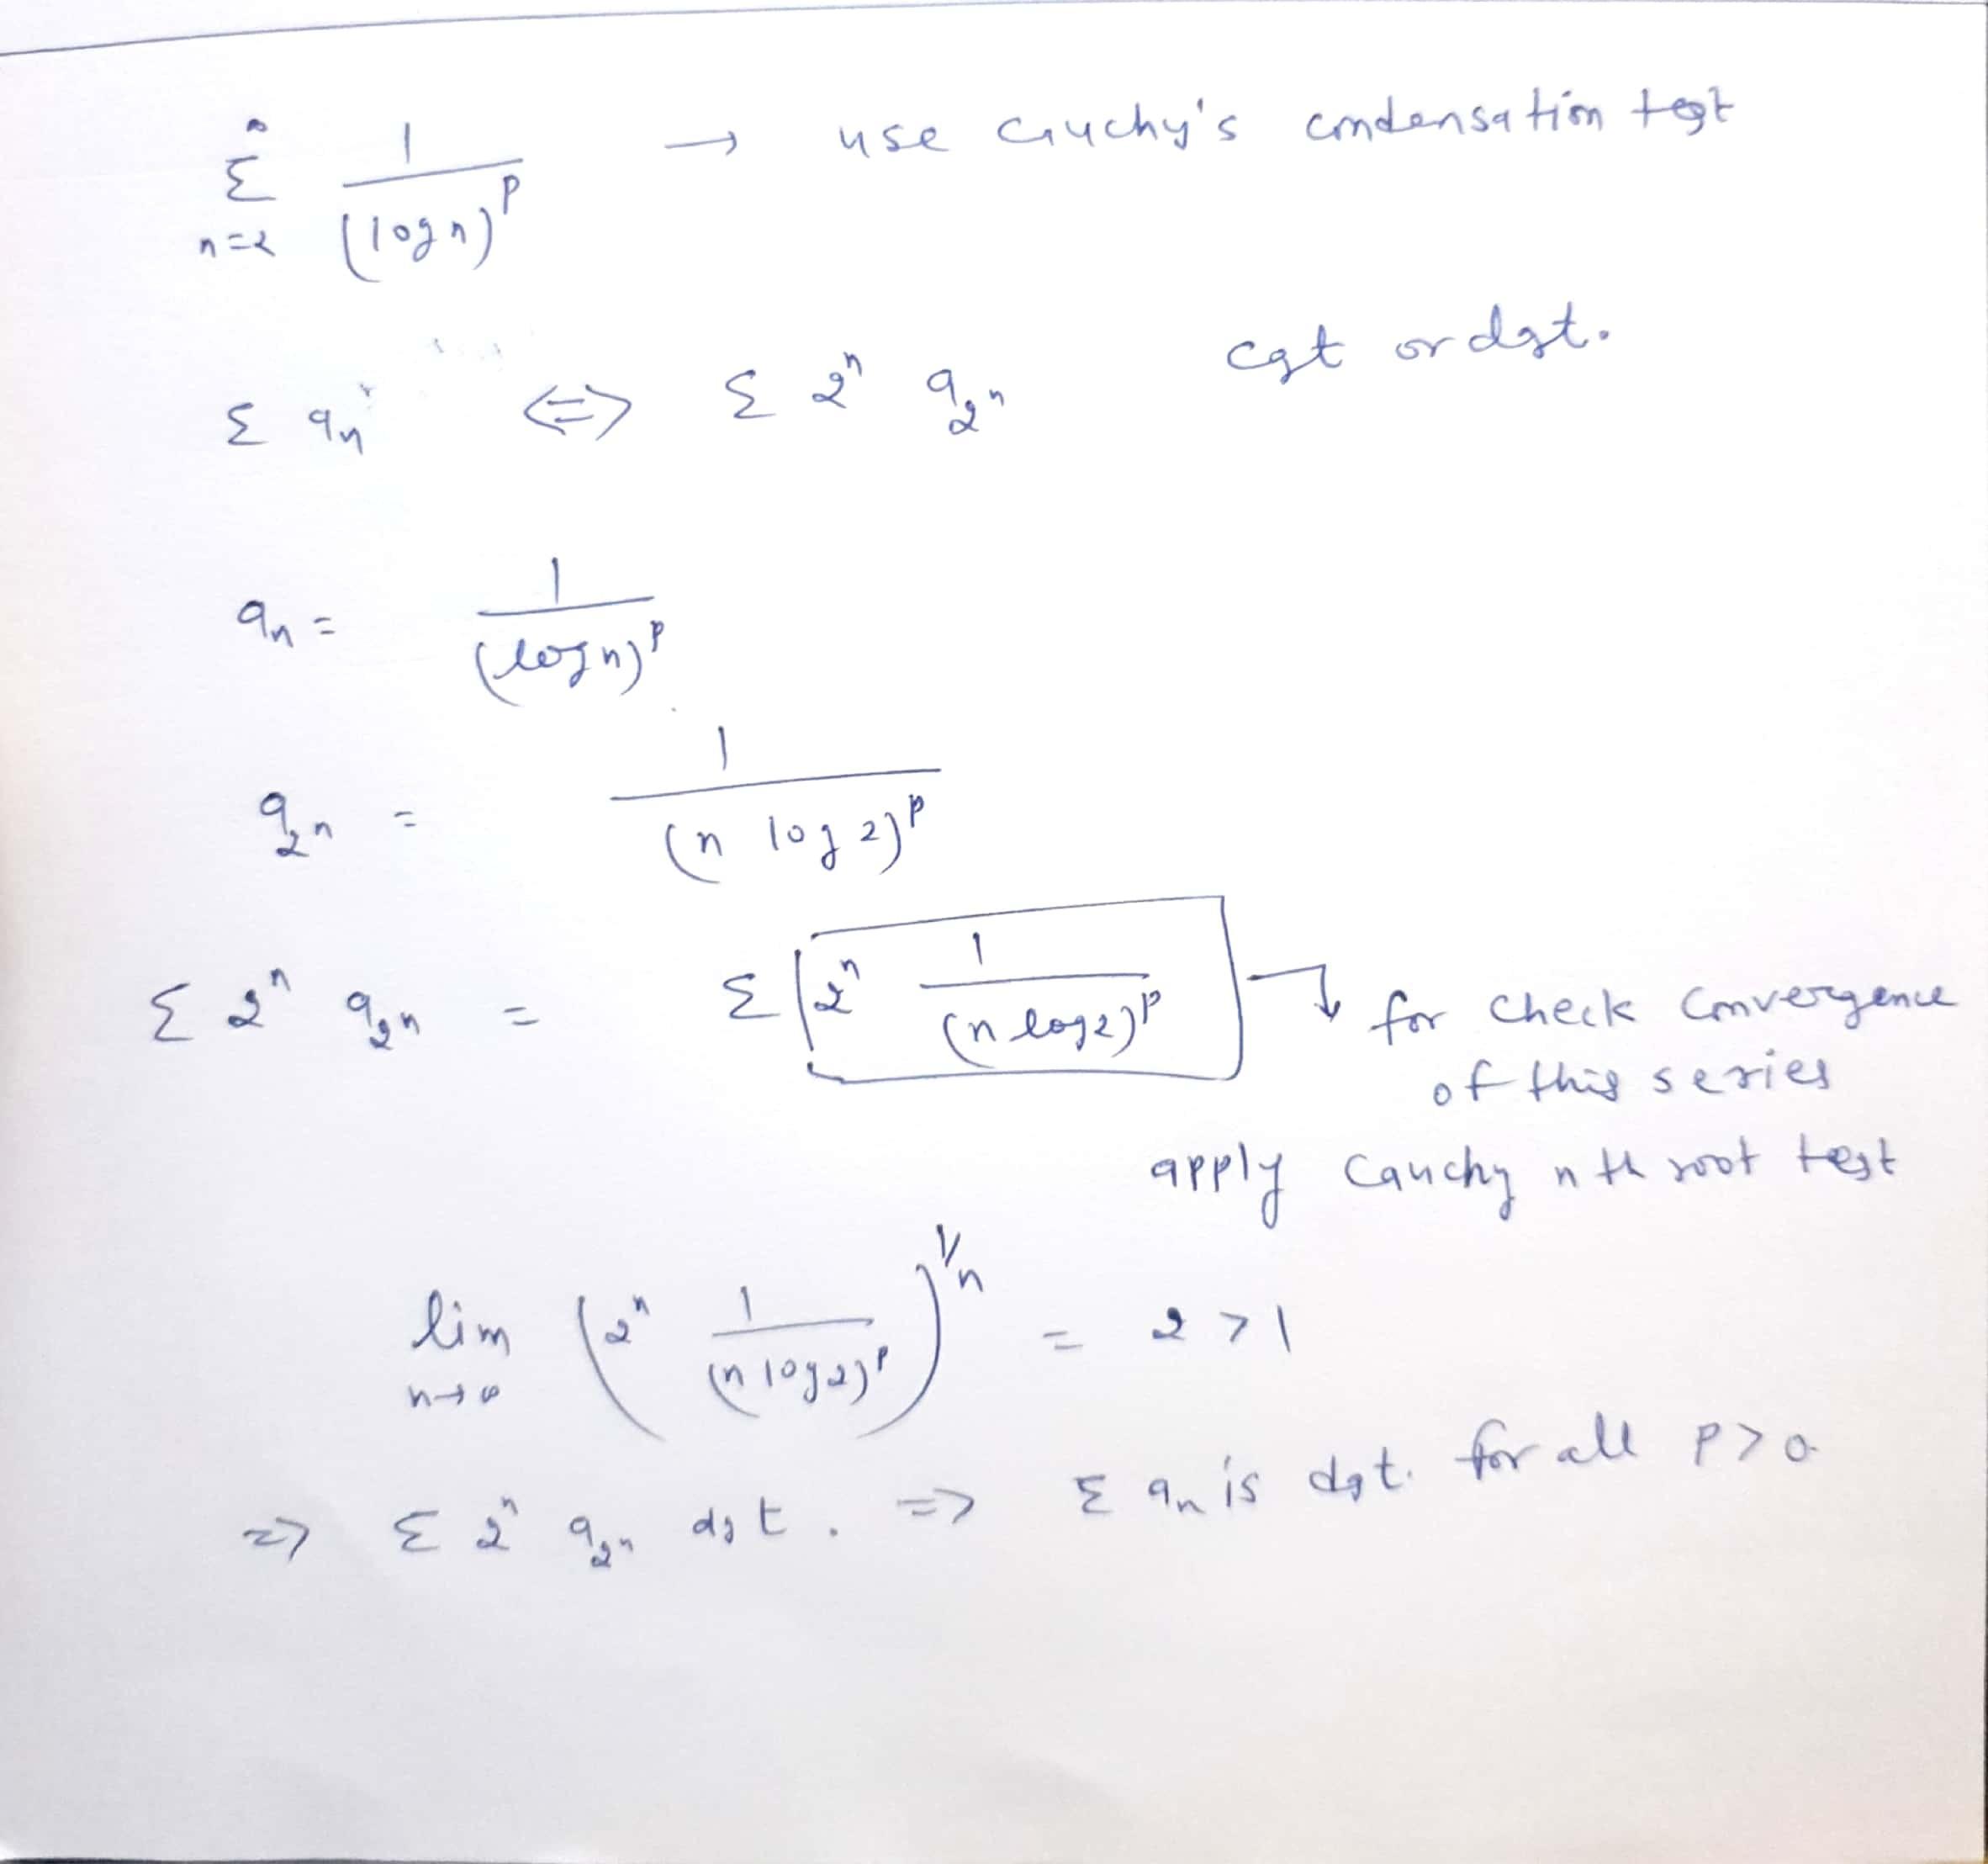 ∞ Σ n=2 1/(log n)^p → use Cauchy's condensation test
Σ a_n ⇔ Σ 2^n a_{2^n} cgt or dgt.
a_n = 1/(log n)^p
a_{2^n} = 1/(n log 2)^p
Σ 2^n a_{2^n} = Σ (2^n 1/(n log 2)^p → for check convergence
of this series
apply Cauchy nth root test
lim n→∞ (2^n 1/(n log 2)^p)^{1/n} = 2 > 1
⇒ Σ 2^n a_{2^n} dgt. ⇒ Σ a_n is dgt. for all p > 0